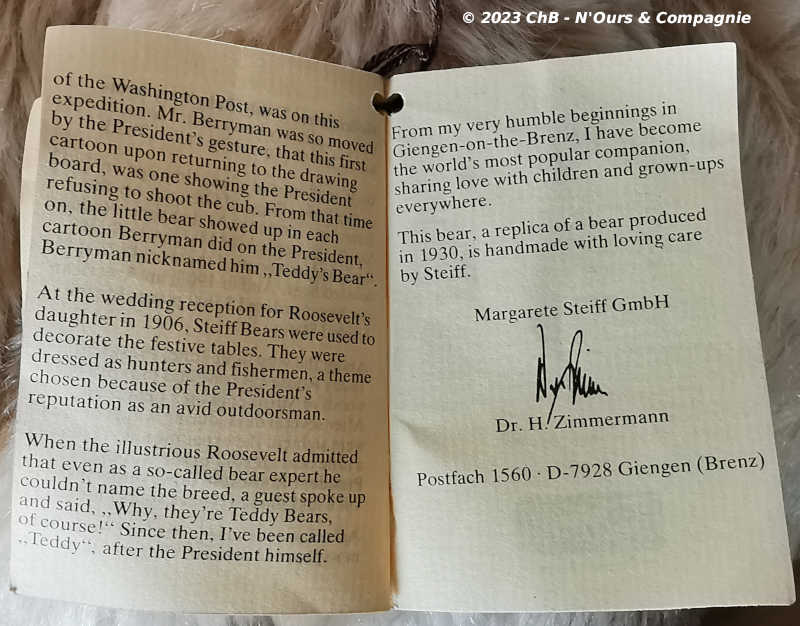 © 2023 ChB - N'Ours & Compagnie
of the Washington Post, was on this
expedition. Mr. Berryman was so moved
by the President's gesture, that this first
cartoon upon returning to the drawing
board, was one showing the President
refusing to shoot the cub. From that time
on, the little bear showed up in each
cartoon Berryman did on the President,
Berryman nicknamed him „Teddy's Bear“.
At the wedding reception for Roosevelt's
daughter in 1906, Steiff Bears were used to
decorate the festive tables. They were
dressed as hunters and fishermen, a theme
chosen because of the President's
reputation as an avid outdoorsman.
When the illustrious Roosevelt admitted
that even as a so-called bear expert he
couldn't name the breed, a guest spoke up
and said, „Why, they're Teddy Bears,
of course!“ Since then, I've been called
„Teddy“, after the President himself.
From my very humble beginnings in
Giengen-on-the-Brenz, I have become
the world's most popular companion,
sharing love with children and grown-ups
everywhere.
This bear, a replica of a bear produced
in 1930, is handmade with loving care
by Steiff.
Margarete Steiff GmbH
Dr. H. Zimmermann
Postfach 1560 · D-7928 Giengen (Brenz)